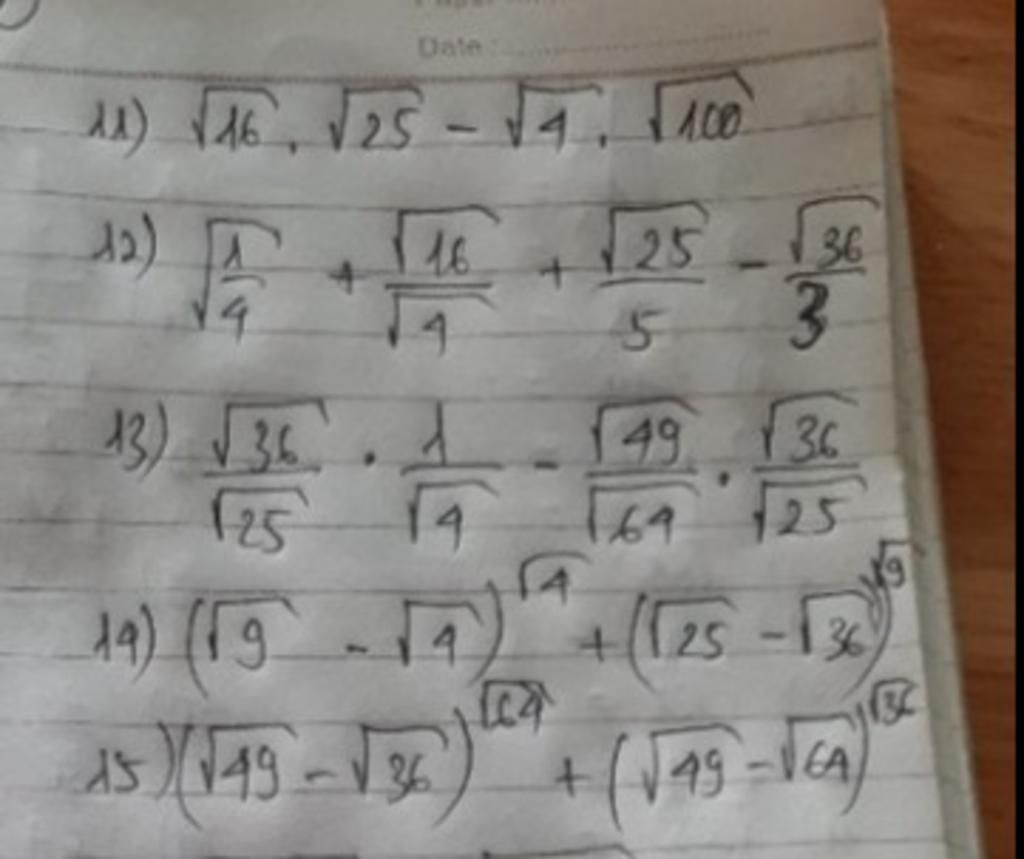 Date :
11) √16 . √25 - √4 . √100
12) √(1/4) + √16/√4 + √25/5 - √36/3
13) √36/√25 . 1/√4 - √49/√64 . √36/√25
14) (√9 - √4)^√4 + (√25 - √36)^√9
15) (√49 - √36)^√64 + (√49 - √64)^√36